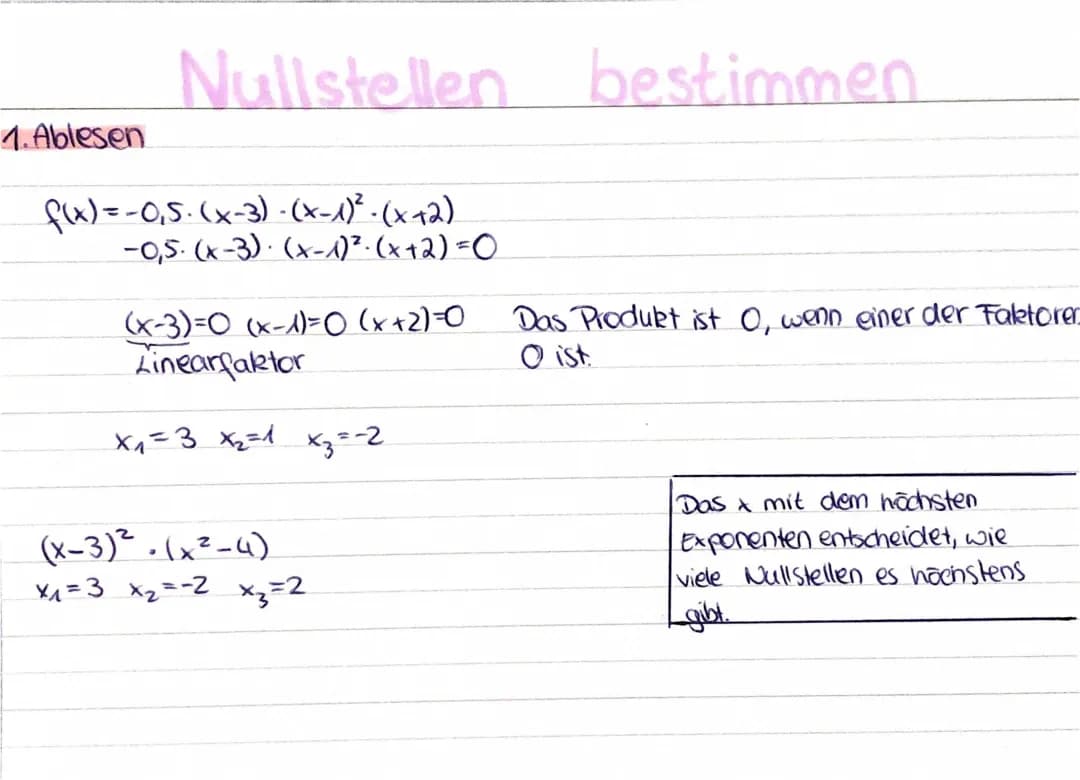 Nullstellen bestimmen
1. Ablesen
f(x)=-0,5·(x-3)·(x-1)²·(x+2)
-0,5·(x-3)·(x-1)²·(x+2)=0
(x-3)=0 (x-1)=0 (x+2)=0 Das Produkt ist 0, wenn einer der Faktoren
Linearfaktor 0 ist.
x₁=3 x₂=1 x₃=-2
Das x mit dem höchsten
Exponenten entscheidet, wie
viele Nullstellen es höchstens
gibt.
(x-3)²·(x²-4)
x₁=3 x₂=-2 x₃=2